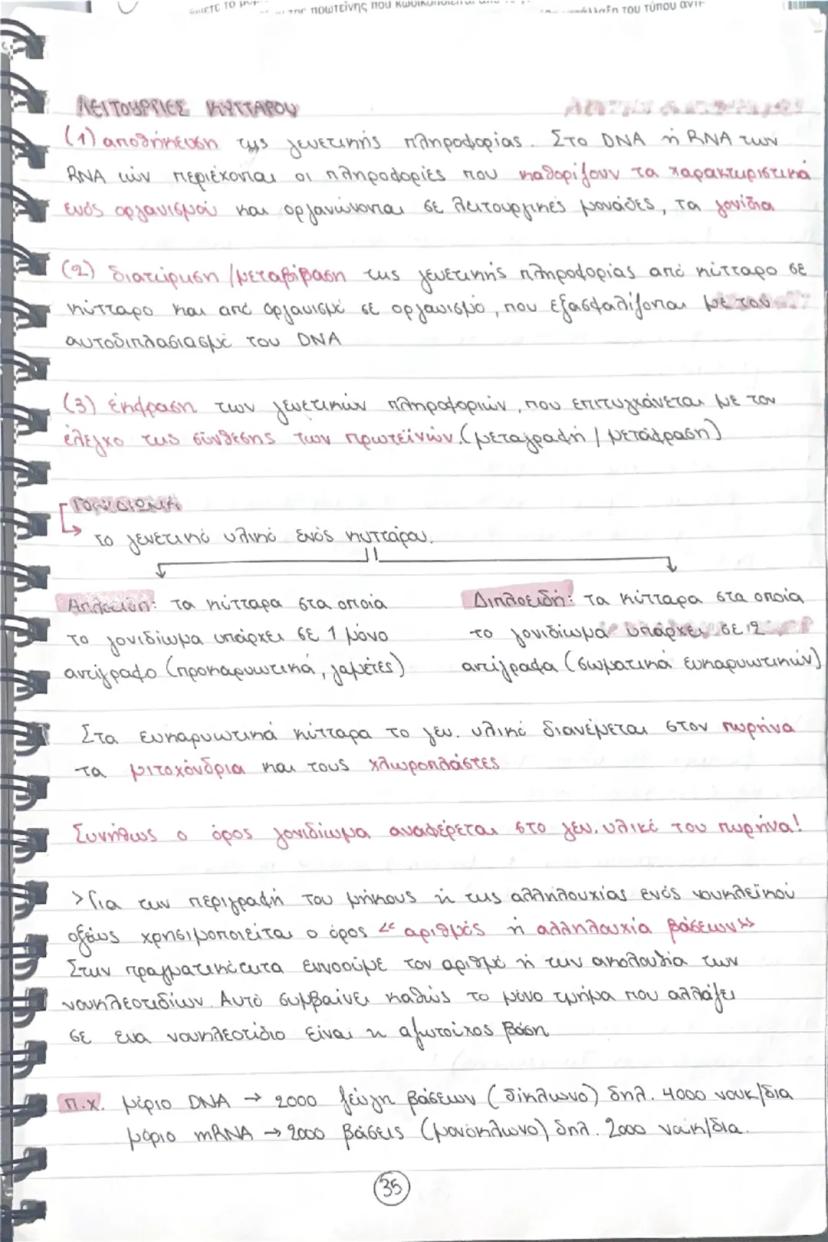 της πρωτεΐνης που
του τύπου αντι-
ΛΕΙΤΟΥΡΓΙΕΣ ΚΥΤΤΑΡΟΥ
(1) αποθήκευση της γενετικής πληροφορίας. Στο DNA ή RNA των
RNA ιών περιέχονται οι πληροφορίες που καθορίζουν τα χαρακτηριστικά
ενός οργανισμού και οργανώνονται σε λειτουργικές μονάδες, τα γονίδια
(2) διατήρηση/μεταβίβαση της γενετικής πληροφορίας από κύτταρο σε
κύτταρο και από οργανισμό σε οργανισμό, που εξασφαλίζονται με τον
αυτοδιπλασιασμό του DNA
(3) έκφραση των γενετικών πληροφοριών, που επιτυγχάνεται με τον
έλεγχο της σύνθεσης των πρωτεϊνών (μεταγραφή / μετάφραση)
Γονιδίωμα
το γενετικό υλικό ενός κυττάρου.
Απλοειδή: τα κύτταρα στα οποία
το γονιδίωμα υπάρχει σε 1 μόνο
αντίγραφο (προκαρυωτικά, γαμέτες)
Διπλοειδή: τα κύτταρα στα οποία
το γονιδίωμα υπάρχει σε 2
αντίγραφα (σωματικά ευκαρυωτικών)
Στα ευκαρυωτικά κύτταρα το γεν. υλικό διανέμεται στον πυρήνα
τα μιτοχόνδρια και τους χλωροπλάστες
Συνήθως ο όρος γονιδίωμα αναφέρεται στο γεν. υλικό του πυρήνα!
> Για την περιγραφή του μήκους ή της αλληλουχίας ενός νουκλεϊκού
οξέως χρησιμοποιείται ο όρος << αριθμός ή αλληλουχία βάσεων >>
Στην πραγματικότητα εννοούμε τον αριθμό ή την ακολουθία των
νουκλεοτιδίων. Αυτό συμβαίνει καθώς το μόνο τμήμα που αλλάζει
σε ένα νουκλεοτίδιο είναι η αζωτούχος βάση
π.χ. μόριο DNA → 2000 ζεύγη βάσεων (δίκλωνο) δηλ. 4000 νουκ/δια
μόριο mRNA → 2000 βάσεις (μονόκλωνο) δηλ. 2000 νουκ/δια.
35